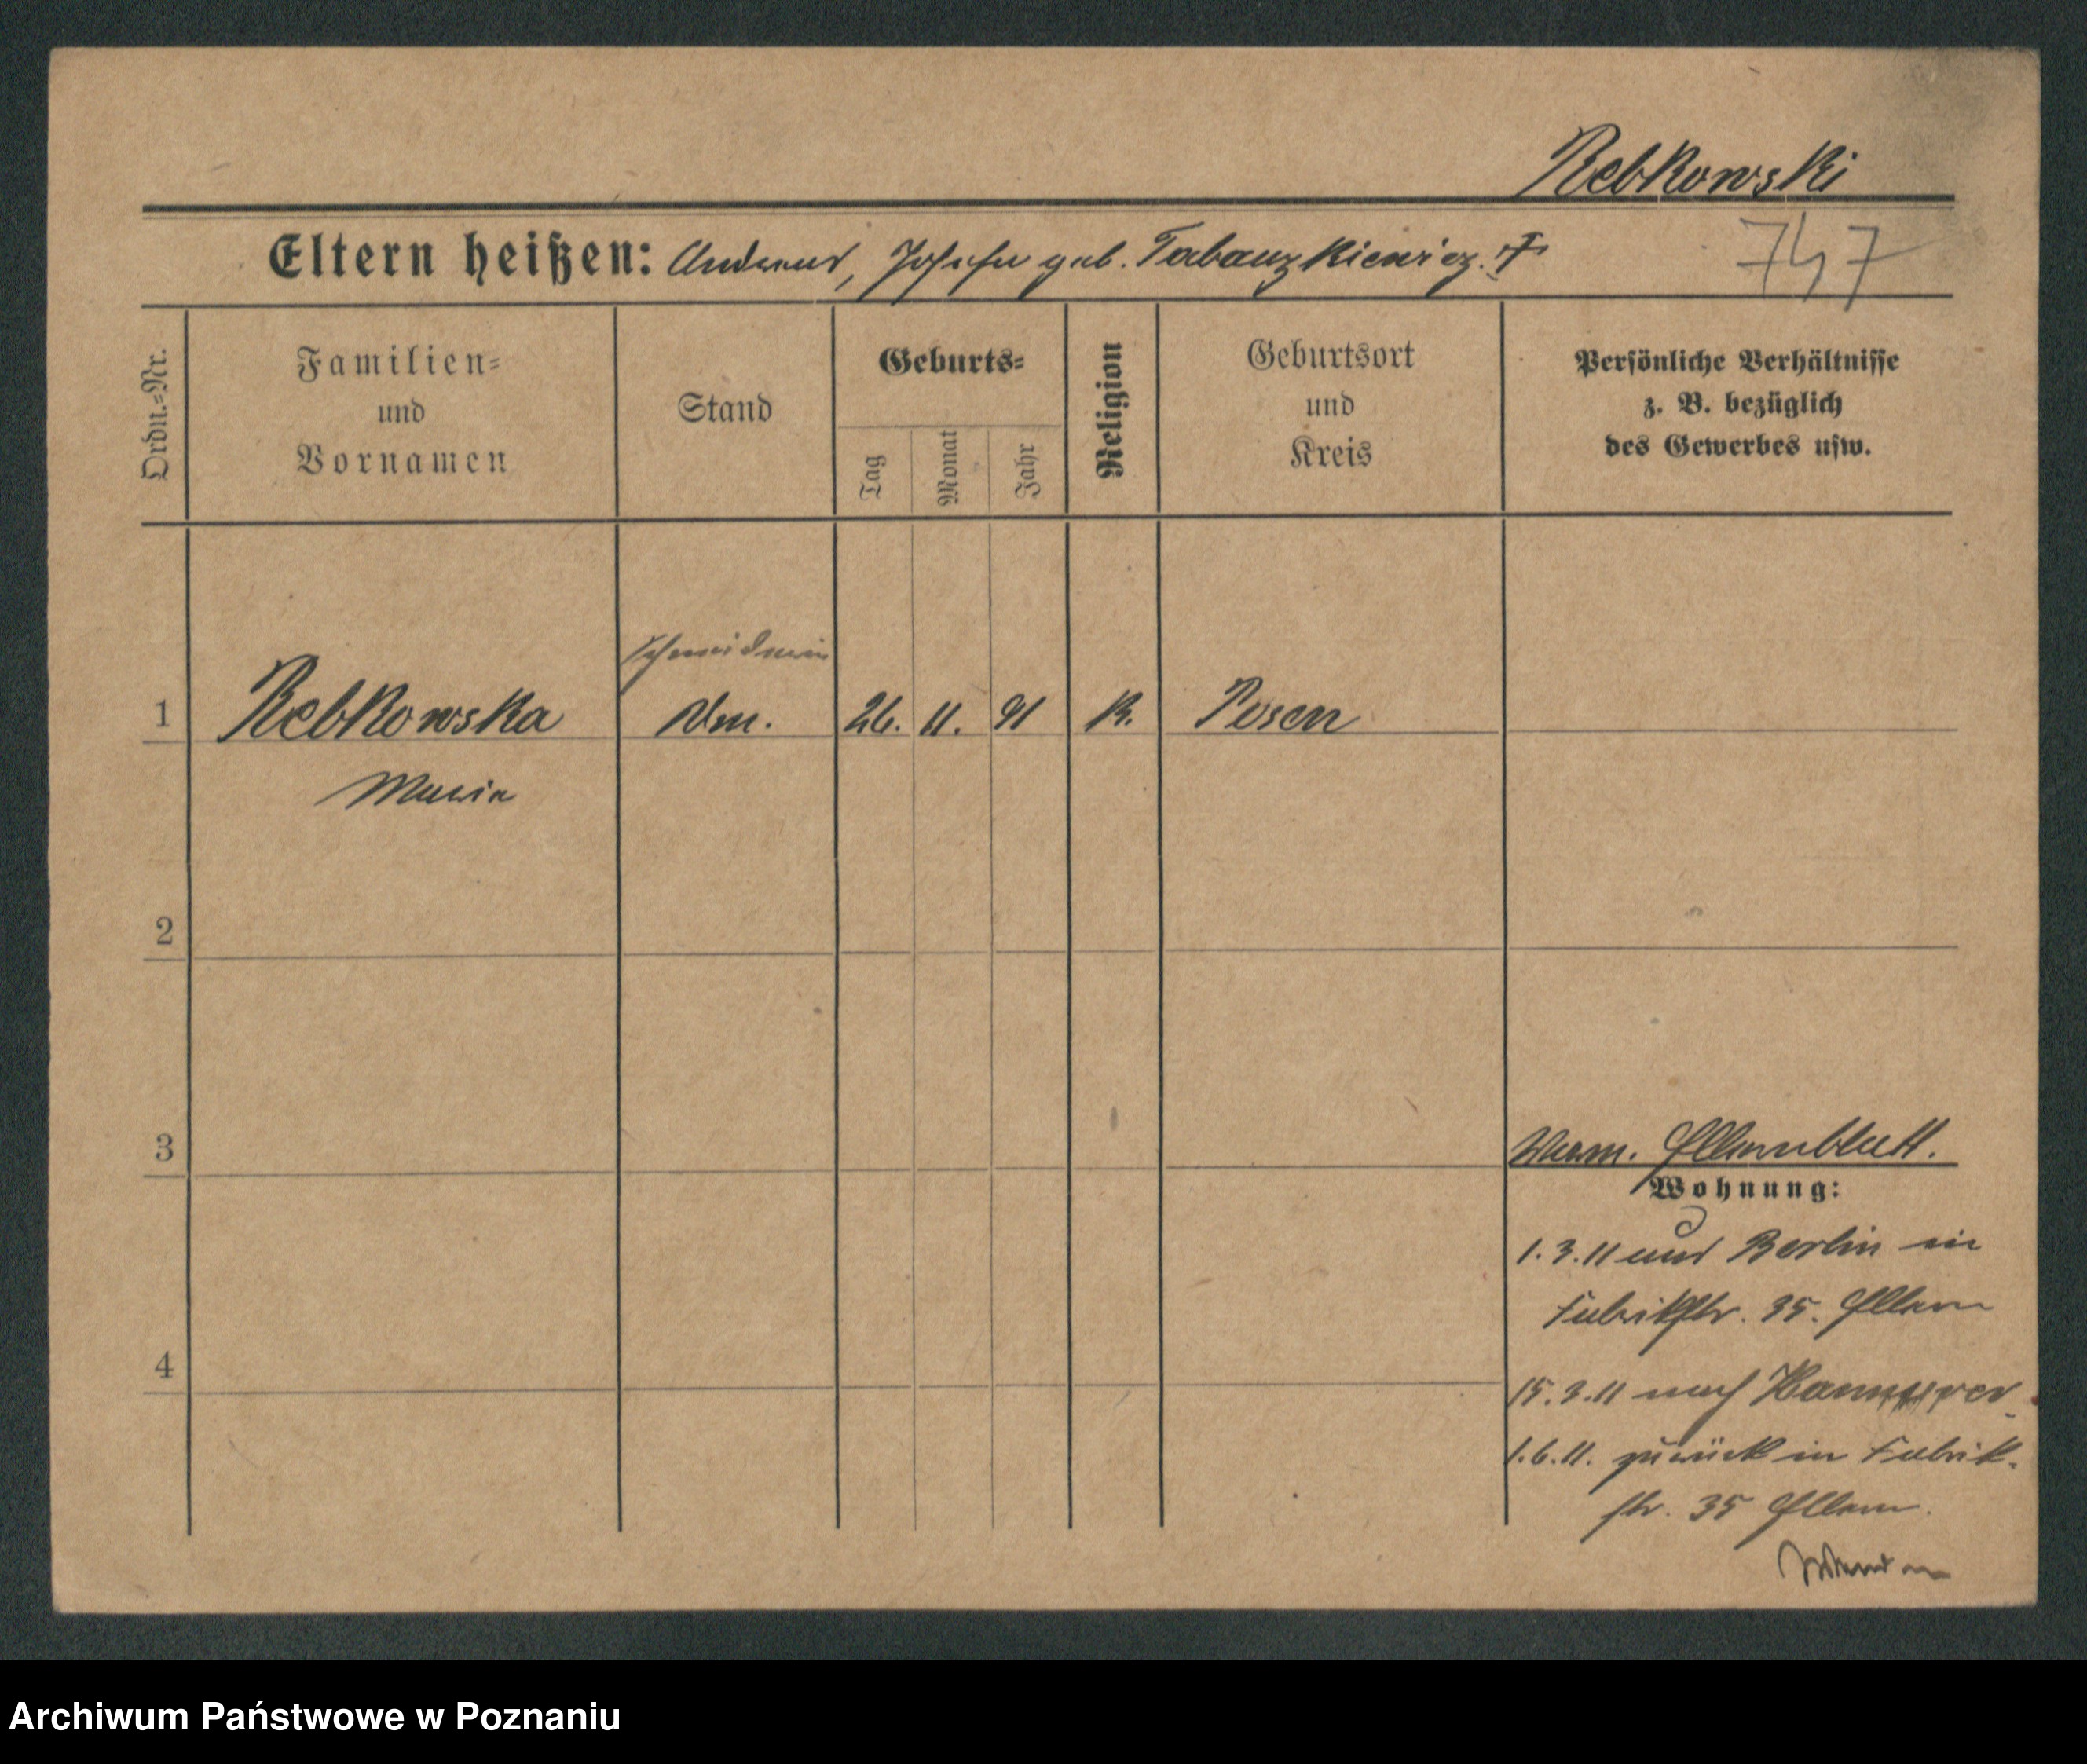 Rebkowski
Eltern heißen: Andreas, Josefa geb. Tabaczkiewicz. †
747
Ordn.-Nr.
Familien-
und
Vornamen
Stand
Geburts-
Tag
Monat
Jahr
Religion
Geburtsort
und
Kreis
Persönliche Verhältnisse
z. B. bezüglich
des Gewerbes usw.
Schneiderin
1 Rebkowska 26. 11. 91 K. Posen
Maria
2
3
Elternblatt.
Wohnung:
1.3.11 aus Berlin in
Fabrikstr. 35. Eltern
15.3.11 nach Hannover
1.6.11. zurück in Fabrik-
str. 35 Eltern.
4
Archiwum Państwowe w Poznaniu